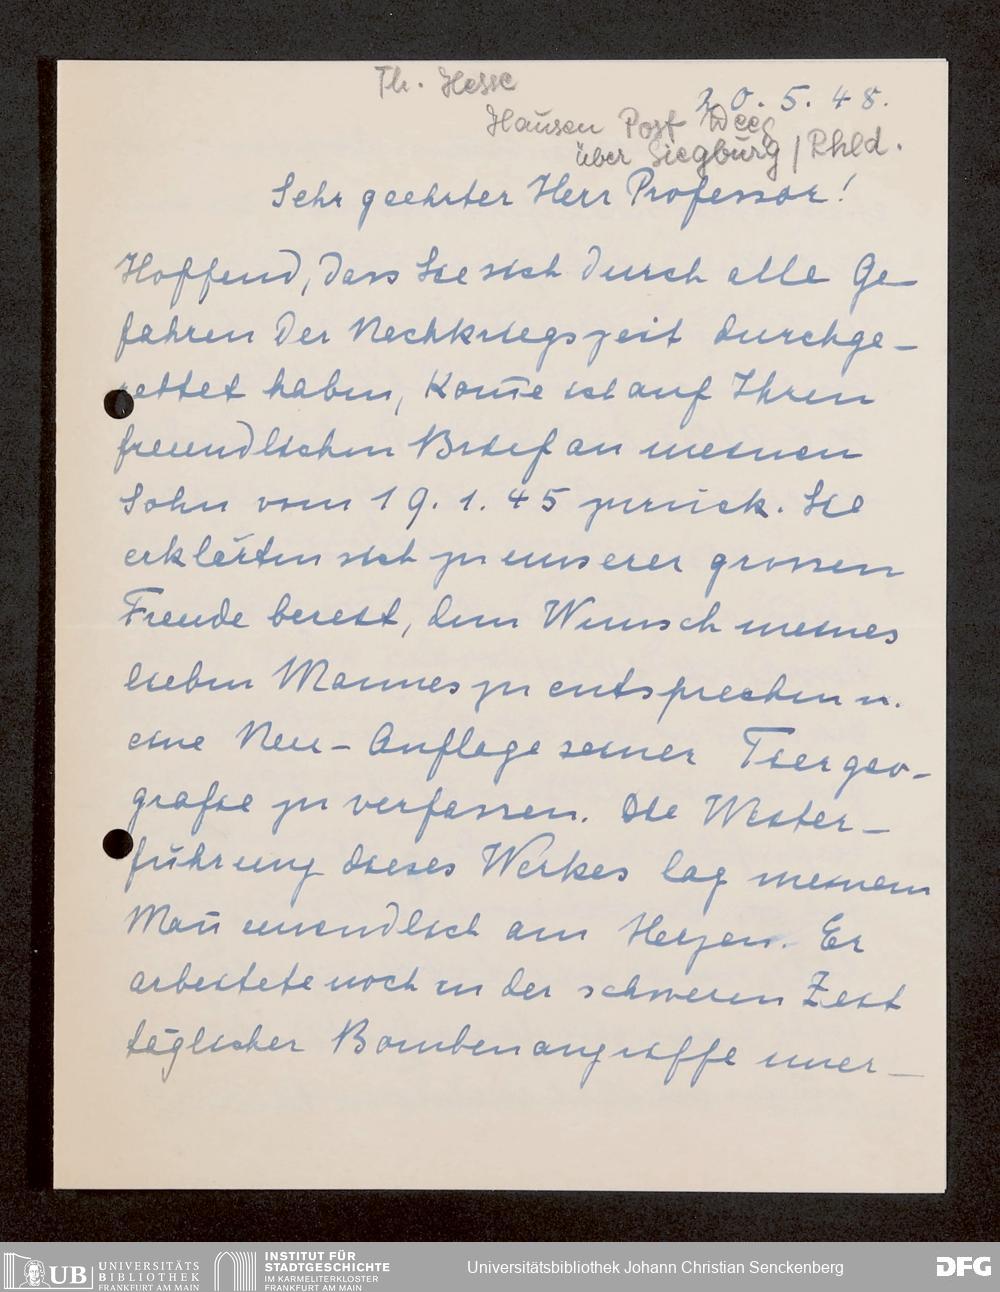 Th. Hesse
20. 5. 48.
Hausen Post Weeg
über Siegburg / Rhld.
Sehr geehrter Herr Professor!
Hoffend, dass Sie sich durch alle Ge-
fahren der Nachkriegszeit durchge-
rettet haben, kom̄e ich auf Ihren
freundlichen Brief an meinen
Sohn vom 19. 1. 45 zurück. Sie
erklärten sich zu unserer grossen
Freude bereit, dem Wunsch meines
lieben Mannes zu entsprechen u.
eine Neu-Auflage seiner Tiergeo-
grafie zu verfassen. Die Weiter-
führung dieses Werkes lag meinem
Man̄ unendlich am Herzen. Er
arbeitete noch in der schweren Zeit
täglicher Bombenangriffe uner-
UB UNIVERSITÄTS
BIBLIOTHEK
FRANKFURT AM MAIN
INSTITUT FÜR
STADTGESCHICHTE
IM KARMELITERKLOSTER
FRANKFURT AM MAIN
Universitätsbibliothek Johann Christian Senckenberg
DFG